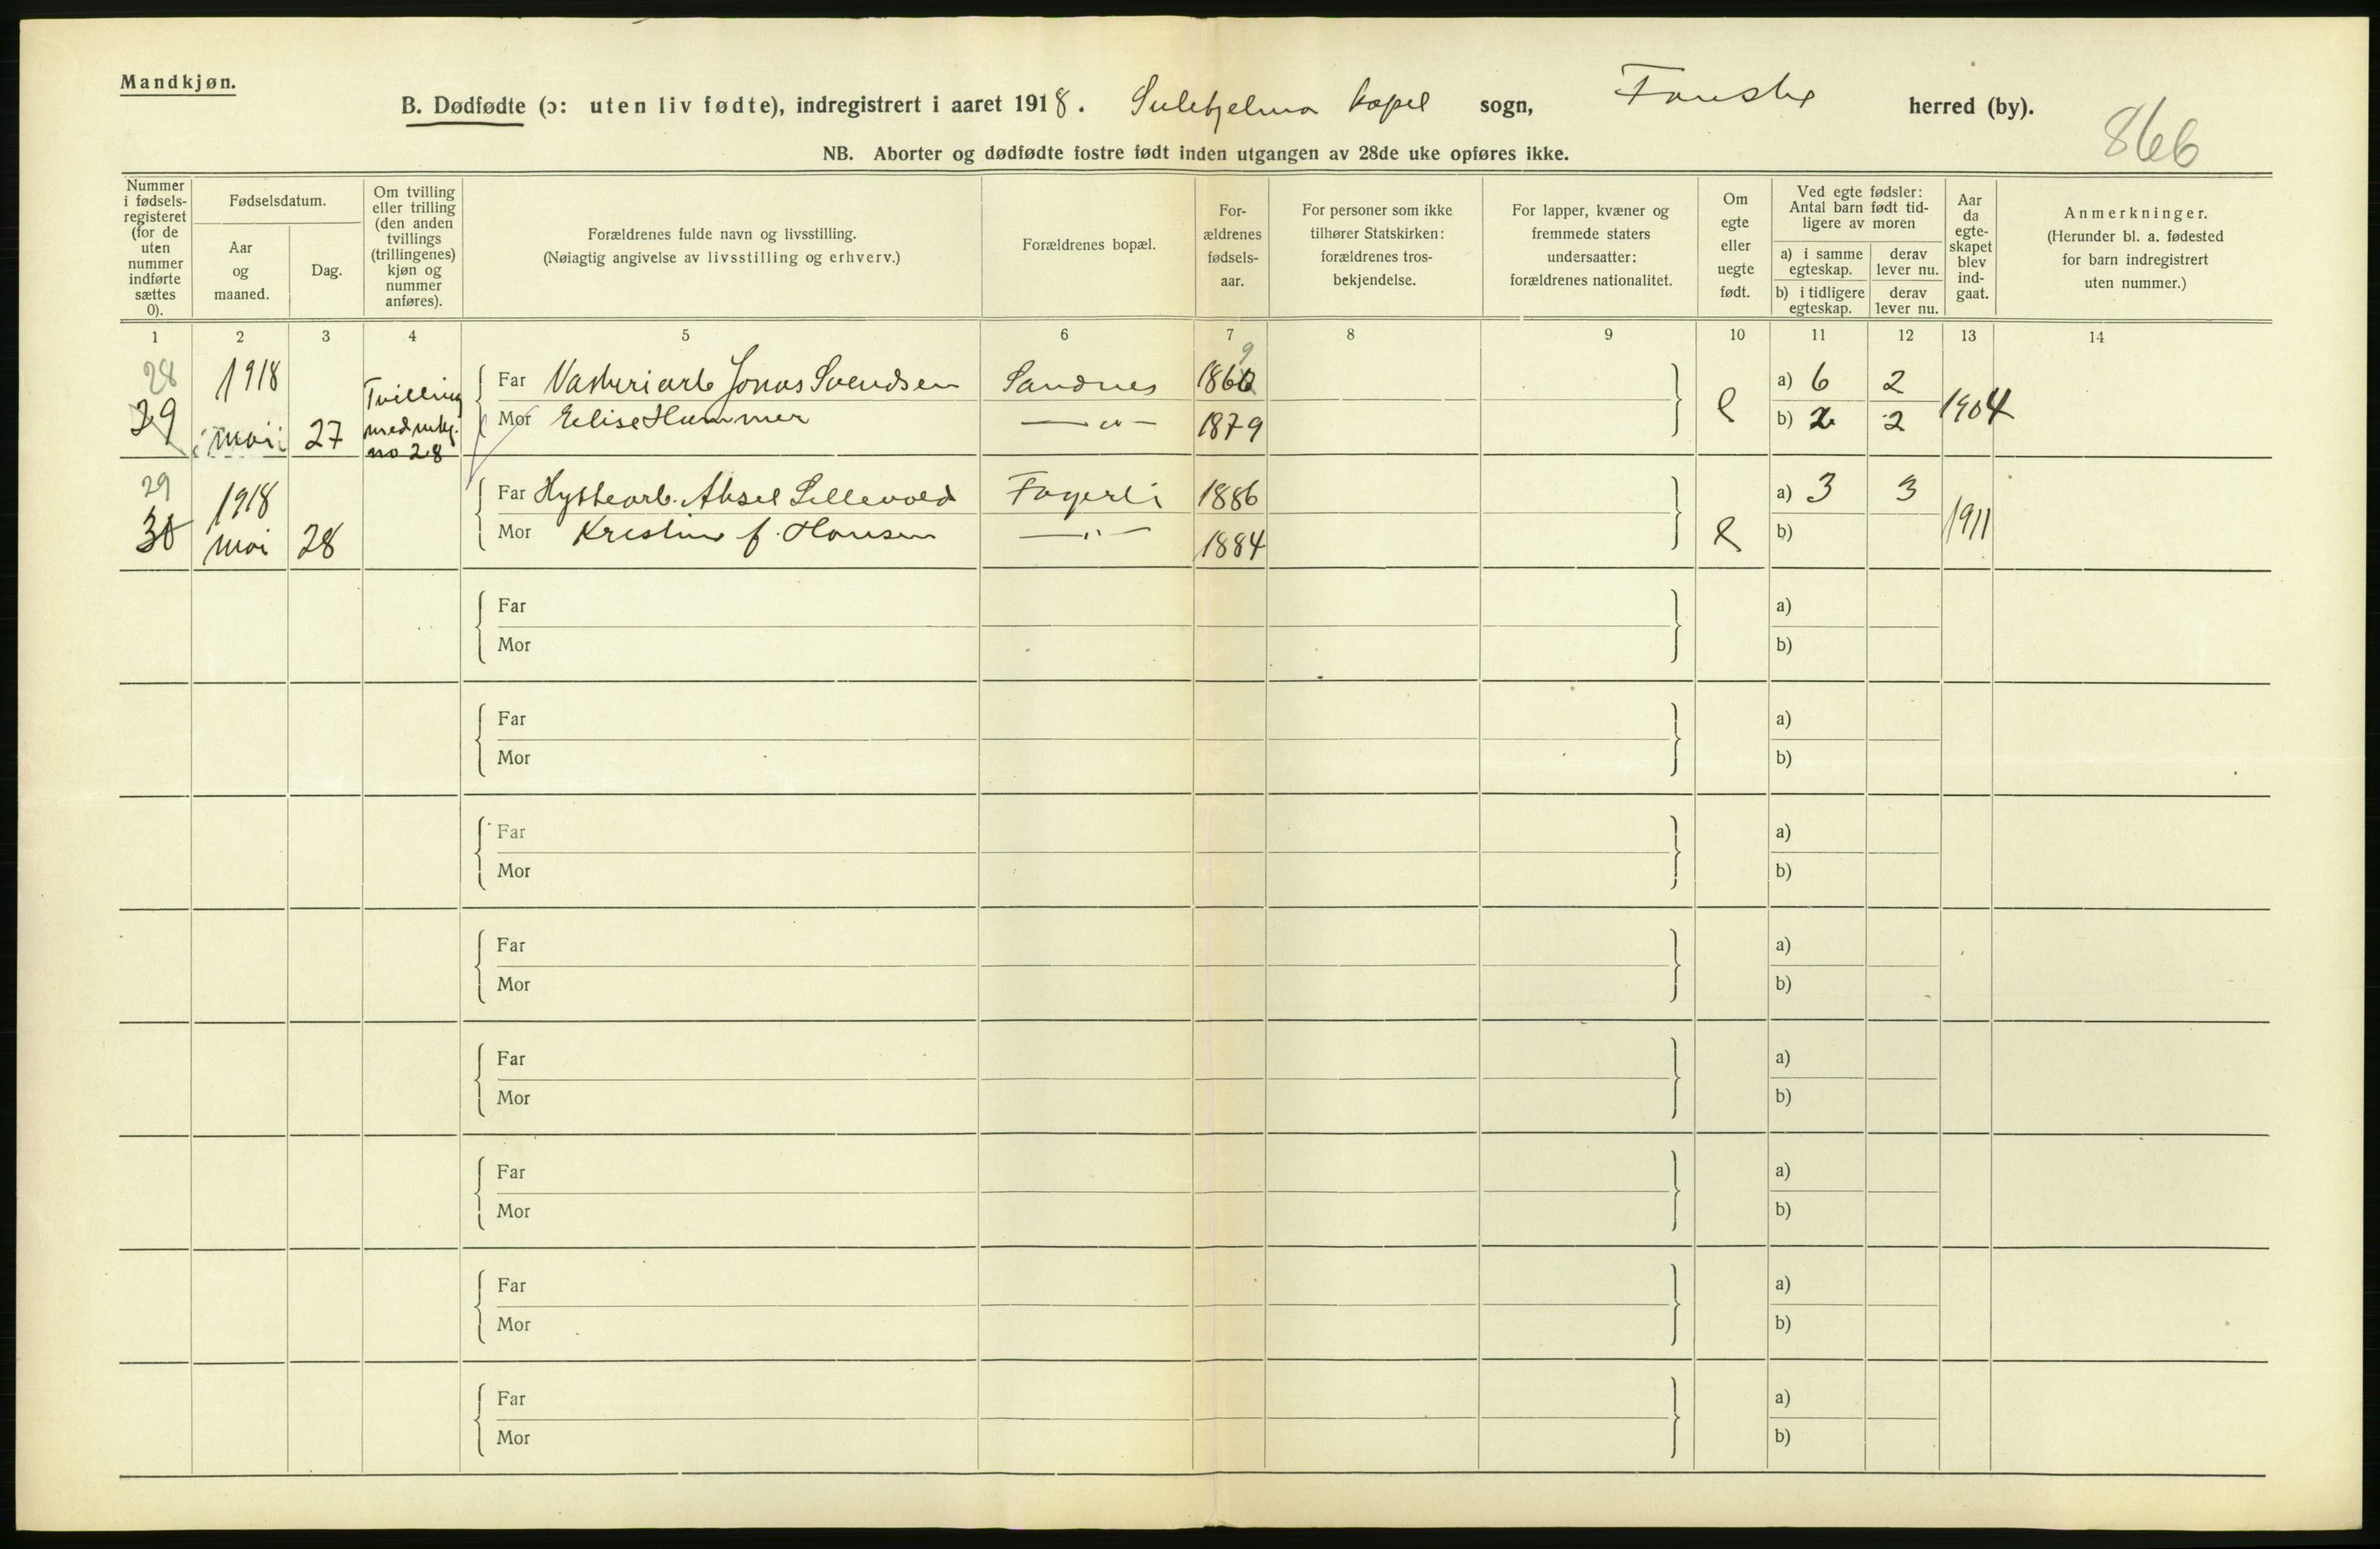 Mandkjøn.
B. Dødfødte (ɔ: uten liv fødte), indregistrert i aaret 1918. Sulitjelma kapel sogn, Fauske herred (by).
866
NB. Aborter og dødfødte fostre født inden utgangen av 28de uke opføres ikke.
Nummer i fødselsregisteret (for de uten nummer indførte sættes 0).
Fødselsdatum.
Aar og maaned.
Dag.
Om tvilling eller trilling (den anden tvillings (trillingenes) kjøn og nummer anføres).
Forældrenes fulde navn og livsstilling.
(Nøiagtig angivelse av livsstilling og erhverv.)
Forældrenes bopæl.
For-ældrenes fødsels-aar.
For personer som ikke tilhører Statskirken: forældrenes tros-bekjendelse.
For lapper, kvæner og fremmede staters undersaatter: forældrenes nationalitet.
Om egte eller uegte født.
Ved egte fødsler: Antal barn født tid-ligere av moren
a) i samme egteskap.
derav lever nu.
b) i tidligere egteskap.
derav lever nu.
Aar da egte-skapet blev ind-gaat.
Anmerkninger.
(Herunder bl. a. fødested for barn indregistrert uten nummer.)
1 2 3 4 5 6 7 8 9 10 11 12 13 14
28
29
1918
mai 27
Tvilling
med mkj.
no 28
Far Vaskeriarb Jonas Svendsen Sandnes 1860 9
Mor Elise Hummer — „ — 1879
e
a) 6 2
b) 2 2
1904
29
30
1918
mai 28
Far Hyttearb. Aksel Sellevold Fagerli 1886
Mor Kristine f. Hansen — „ — 1884
e
a) 3 3
b)
1911
Far a)
Mor b)
Far a)
Mor b)
Far a)
Mor b)
Far a)
Mor b)
Far a)
Mor b)
Far a)
Mor b)
Far a)
Mor b)
Far a)
Mor b)